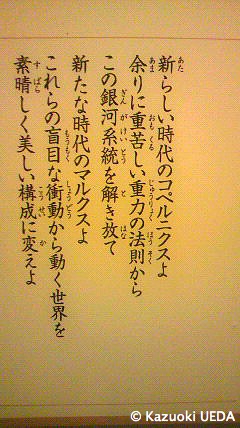 新らしい時代のコペルニクスよ
余りに重苦しい重力の法則から
この銀河系統を解き放て
新たな時代のマルクスよ
これらの盲目な衝動から動く世界を
素晴しく美しい構成に変えよ
© Kazuoki UEDA